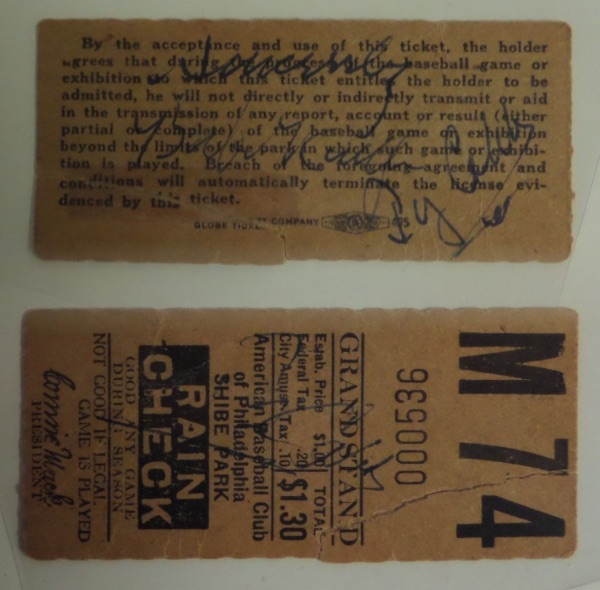 By the acceptance and use of this ticket, the holder
agrees that during the progress of the baseball game or
exhibition to which this ticket entitles the holder to be
admitted, he will not directly or indirectly transmit or aid
in the transmission of any report, account or result (either
partial or complete) of the baseball game or exhibition
beyond the limits of the park in which such game or exhibi-
tion is played. Breach of the foregoing agreement and
conditions will automatically terminate the license evi-
denced by this ticket.
GLOBE TICKET COMPANY
M 74
000536
GRANDSTAND
Estab. Price $1.00 TOTAL
Federal Tax .20
City Amuse. Tax .10 $1.30
American Baseball Club
of Philadelphia
SHIBE PARK
RAIN
CHECK
GOOD ANY GAME
DURING SEASON
NOT GOOD IF LEGAL
GAME IS PLAYED
Connie Mack
PRESIDENT